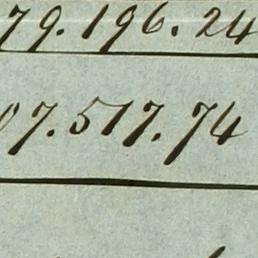 79.196.24
07.517.74